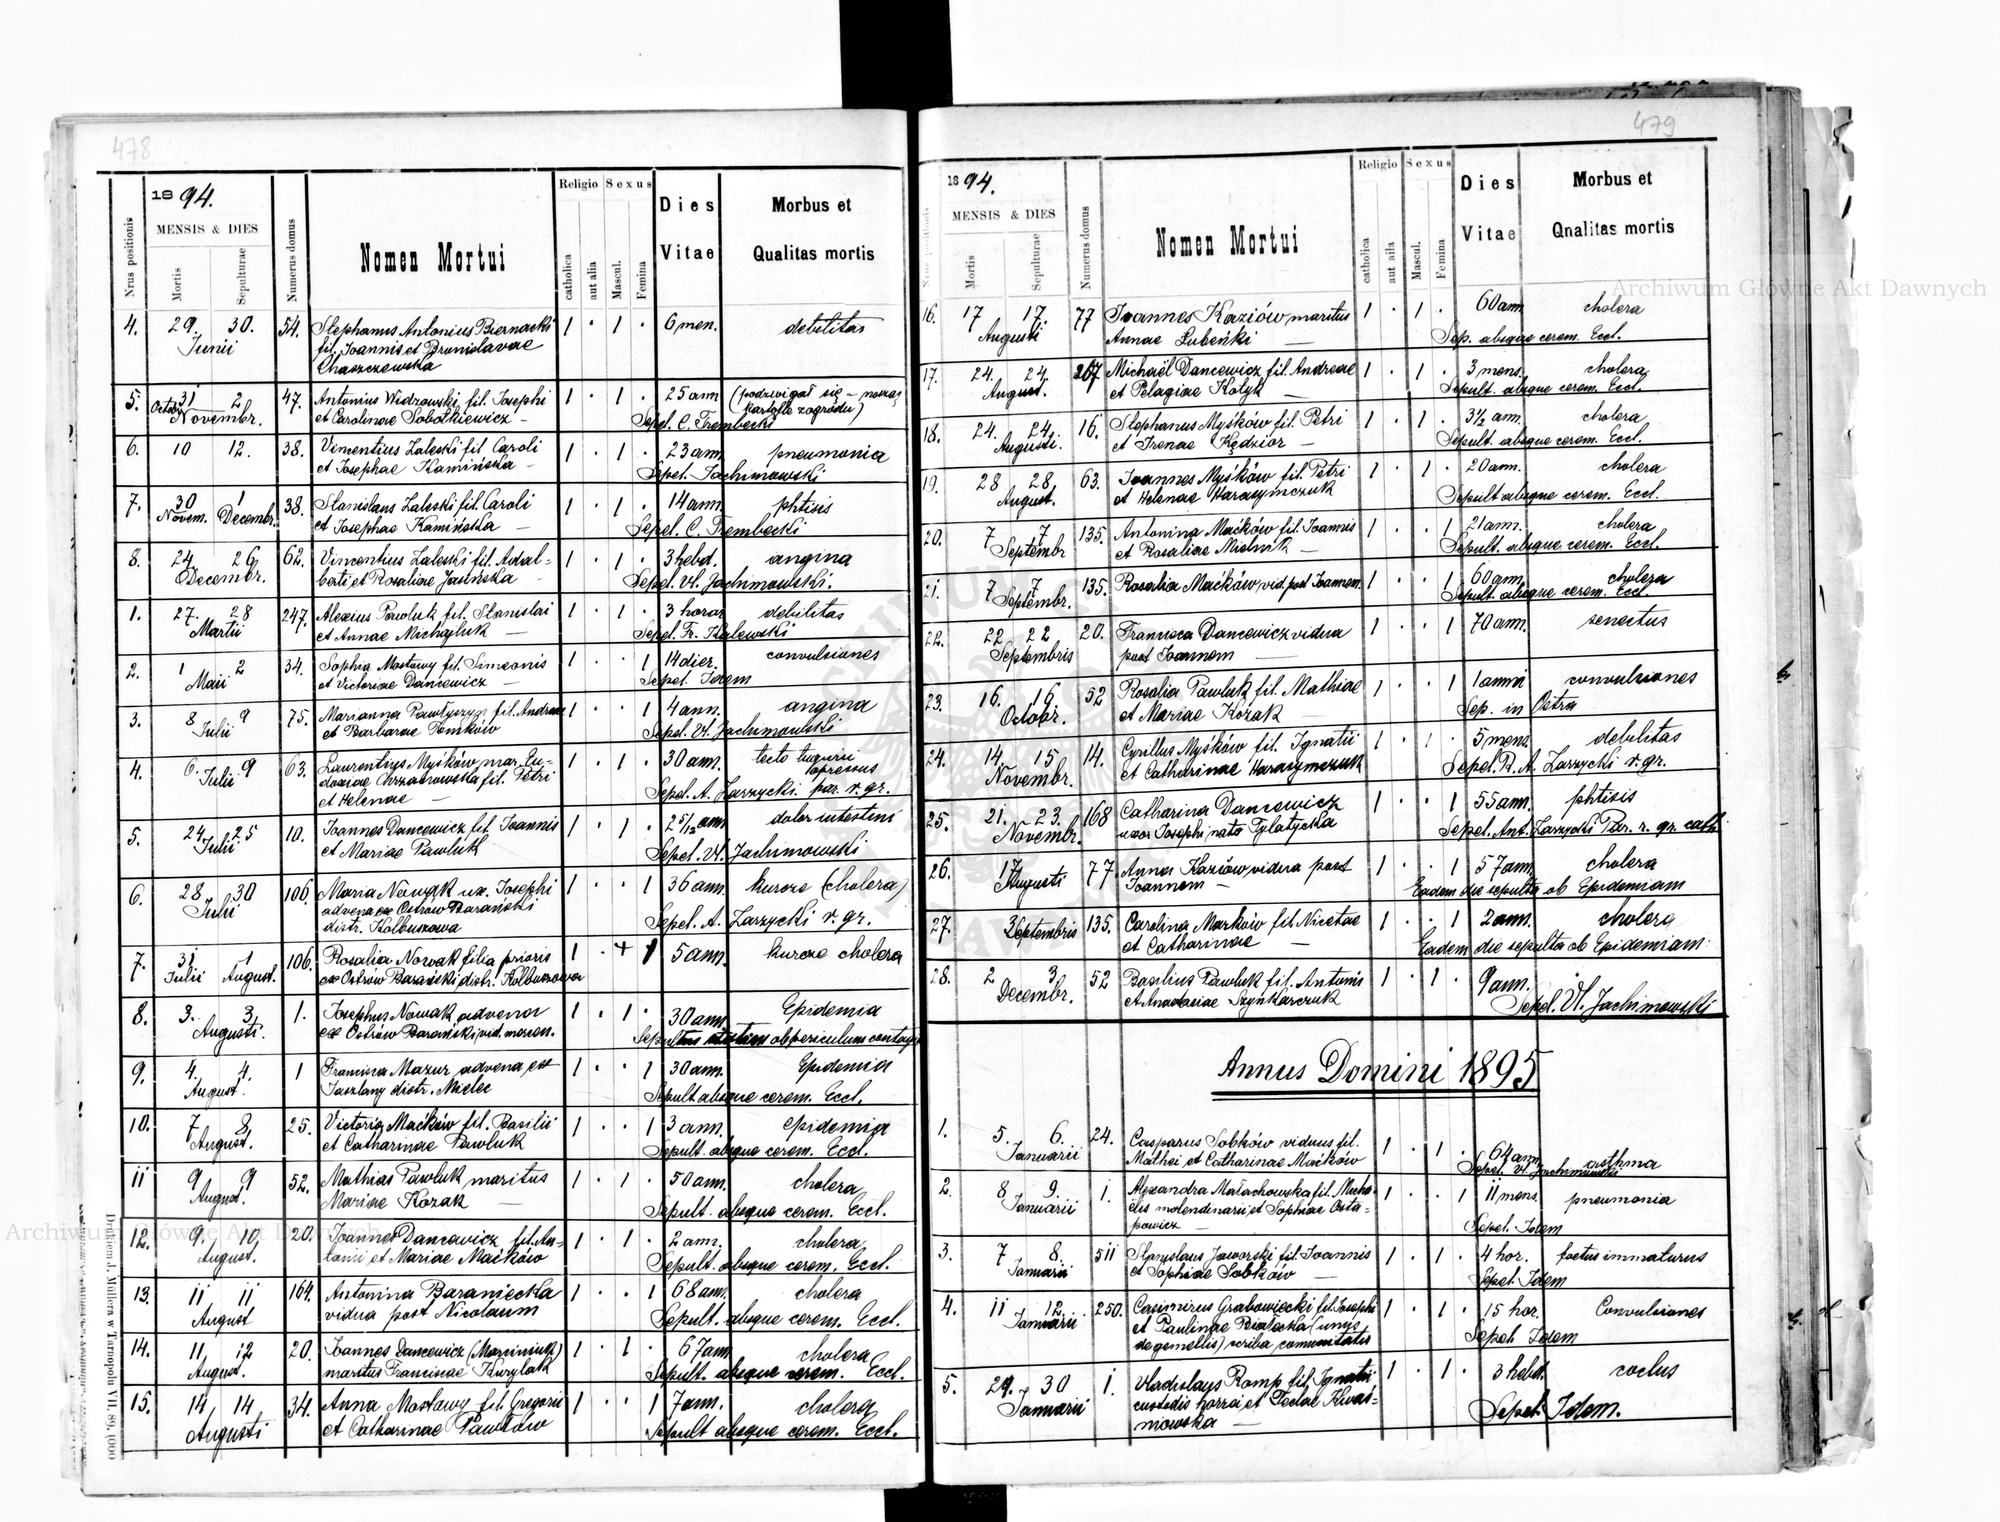 478
18 94.
MENSIS & DIES
Nrus positionis
Mortis
Sepulturae
Numerus domus
Nomen Mortui
Religio
catholica
aut alia
Sexus
Mascul.
Femina
Dies
Vitae
Morbus et
Qualitas mortis
4. 29. 30. 54. Stephanus Antonius Biernacki 1 · 1 · 6 men. debilitas
Junii fil. Joannis et Bronislavae
Chaszczewska
5. 31 2 47. Antonius Widzowski fil. Josephi 1 · 1 · 25 ann (podzwigał się - nosząc
Octobr Novembr. et Carolinae Sobotkiewicz - kartofle z ogrodu)
Sepel. C. Trembecki
6. 10 12. 38. Vincentius Zaleski fil. Caroli 1 · 1 · 23 ann. pneumonia
et Josephae Kamińska - Sepel. Jachimowski
7. 30 1 38. Stanislaus Zaleski fil. Caroli 1 · 1 · 14 ann. phtisis
Novem. Decembr. et Josephae Kamińska - Sepel. C. Trembecki
8. 24 26 62. Vincentius Zaleski fil. Adal- 1 · 1 · 3 hebd. angina
Decembr. berti et Rosaliae Jasińska - Sepel. Vl. Jachimowski.
1. 27. 28 247. Alexius Pawluk fil. Stanislai 1 · 1 · 3 horas debilitas
Martii et Annae Michajluk - Sepel. Fr. Kalewski
2. 1 2 34. Sophia Mostowy fil. Simeonis 1 · · 1 14 dier. convulsiones
Maii et Victoriae Dancewicz - Sepel. Idem
3. 8 9 75. Marianna Pawłyszyn fil. Andreae 1 · · 1 4 ann. angina
Julii et Barbarae Temków Sepel. Vl. Jachimowski
4. 6. 9 63. Laurentius Myśków, mar. Eu- 1 · 1 · 30 ann. tecto tugurii
Julii doxiae Chrzanowska fil. Petri oppressus
et Helenae - Sepel. A. Zarzycki par. r. gr.
5. 24 25 10. Joannes Dancewicz fil. Joannis 1 · 1 · 2 5/12 ann dolor intestini
Julii et Mariae Pawluk Sepel. Vl. Jachimowski
6. 28 30 106. Maria Nowak ux. Josephi 1 · · 1 36 ann. kurcze (cholera)
Julii advena ex Ostrów Barański
distr. Kolbuszowa Sepel. A. Zarzycki r. gr.
7. 31 1 106. Rosalia Nowak filia prioris 1 · + 1 5 ann. kurcze cholera
Julii August. ex Ostrów Barański distr. Kolbuszowa
8. 3. 3. 1. Josephus Nowak advena 1 · 1 · 30 ann. Epidemia
Augusti. ex Ostrów Barański, vid. mar. en. Sepultus statim ob periculum contag.
9. 4. 4. 1 Francisca Mazur advena ex 1 · · 1 30 ann. Epidemia
August. Jaszlany distr. Mielec Sepult absque cerem. Eccl.
10. 7 8. 25. Victoria Maćków fil. Basilii 1 · · 1 3 ann. epidemia
August. et Catharinae Pawluk Sepult. absque cerem. Eccl.
11 9 9 52. Mathias Pawluk maritus 1 · 1 · 50 ann. cholera
August. Mariae Kozak - Sepult. absque cerem. Eccl.
12. 9. 10. 20. Joannes Dancewicz fil. An- 1 · 1 · 2 ann. cholera
August. tonii et Mariae Maćków Sepult. absque cerem. Eccl.
13. 11 11 164. Antonina Baraniecka 1 · · 1 68 ann. cholera
August vidua post Nicolaum Sepult. absque cerem. Eccl.
14. 11 12 20. Joannes Dancewicz (Marciniuk) 1 · 1 · 67 ann. cholera
August. maritus Franciscae Kurylak Sepult. absque cerem. Eccl.
15. 14 14 34. Anna Mostowy fil. Gregorii 1 · · 1 7 ann. cholera
Augusti et Catharinae Pawłów Sepult absque cerem. Eccl.
479
18 94.
MENSIS & DIES
Nrus positionis
Mortis
Sepulturae
Numerus domus
Nomen Mortui
Religio
catholica
aut aila
Sexus
Mascul.
Femina
Dies
Vitae
Morbus et
Qnalitas mortis
16. 17 17. 77 Joannes Kaziów, maritus 1 · 1 · 60 ann. cholera
Augusti Annae Łubeńki - Sep. absque cerem. Eccl.
17. 24. 24. 207 Michaël Dancewicz fil. Andreae 1 · 1 · 3 mens. cholera
August. et Pelagiae Kotyk - Sepult. absque cerem. Eccl.
18. 24. 24. 16. Stephanus Myśków fil. Petri 1 · 1 · 3 1/2 ann. cholera
Augusti. et Irenae Kędzior - Sepult. absque cerem. Eccl.
19. 28 28. 63. Joannes Myśków fil. Petri 1 · 1 · 20 ann. cholera
August. et Helenae Harasymczuk Sepult absque cerem. Eccl.
20. 7 7 135. Antonina Maćków fil. Joannis 1 · · 1 21 ann. cholera
Septembr et Rosaliae Mielnik - Sepult. absque cerem. Eccl.
21. 7 7 135. Rosalia Maćków vid. post Joannem. 1 · · 1 60 ann. cholera
Septembr. Sepult absque cerem. Eccl.
22. 22 22 20. Francisca Dancewicz vidua 1 · · 1 70 ann. senectus
Septembris post Joannem -
23. 16. 16 52 Rosalia Pawluk fil. Mathiae 1 · · 1 1 anni convulsiones
Octobr. et Mariae Kozak - Sep. in Ostra
24. 14. 15 14. Cyrillus Myśków fil. Ignatii 1 · 1 · 5 mens. debilitas
Novembr. et Catharinae Harasymczuk Sepel. R. A. Zarzycki r. gr.
25. 21. 23. 168 Catharina Dancewicz 1 · · 1 55 ann. phtisis
Novembr. uxor Josephi nata Tylatycka Sepel. Ant. Zarzycki Par. r. gr. cath.
26. 17 77 Anna Kaziów vidua post 1 · · 1 57 ann. cholera
Augusti Joannem - Eadem die sepulta ob Epidemiam
27. 3 Septembris 135. Carolina Marków fil. Nicetae 1 · · 1 2 ann. cholera
et Catharinae - Eadem die sepulta ob Epidemiam.
28. 2 3 52 Basilius Pawluk fil. Antonii 1 · 1 · 9 ann.
Decembr. et Anastasiae Szynkarczuk Sepel. Vl. Jachimowski
Annus Domini 1895
1. 5. 6. 24. Casparus Sobków viduus fil. 1 · 1 · 64 ann. asthma
Januarii Mathei et Catharinae Maćków Sepel. Vl. Jachimowski
2. 8 9. 1. Alexandra Małachowska fil. Micha- 1 · · 1 11 mens. pneumonia
Januarii ëlis molendinarii, et Sophiae Osta-
powicz - Sepel. Idem
3. 7 8. 511 Stanislaus Jaworski fil. Joannis 1 · 1 · 4 hor. foetus immaturus
Januarii et Sophiae Sobków - Sepel. Idem
4. 11 12. 250. Casimirus Grabowiecki fil. Josephi 1 · 1 · 15 hor. Convulsiones
Januarii et Paulinae Białecka (unus
de gemellis) scriba comunitatis Sepel. Idem
5. 29. 30 1. Vladislaus Romp fil. Ignatii 1 · 1 · 3 hebd. coctus
Januarii custodis horrei, et Teclae Kwas-
niowska - Sepel. Idem.
Drukiem J. Müllera w Tarnopolu VII. 89. 1000
Archiwum Główne Akt Dawnych
Archiwum Główne Akt Dawnych